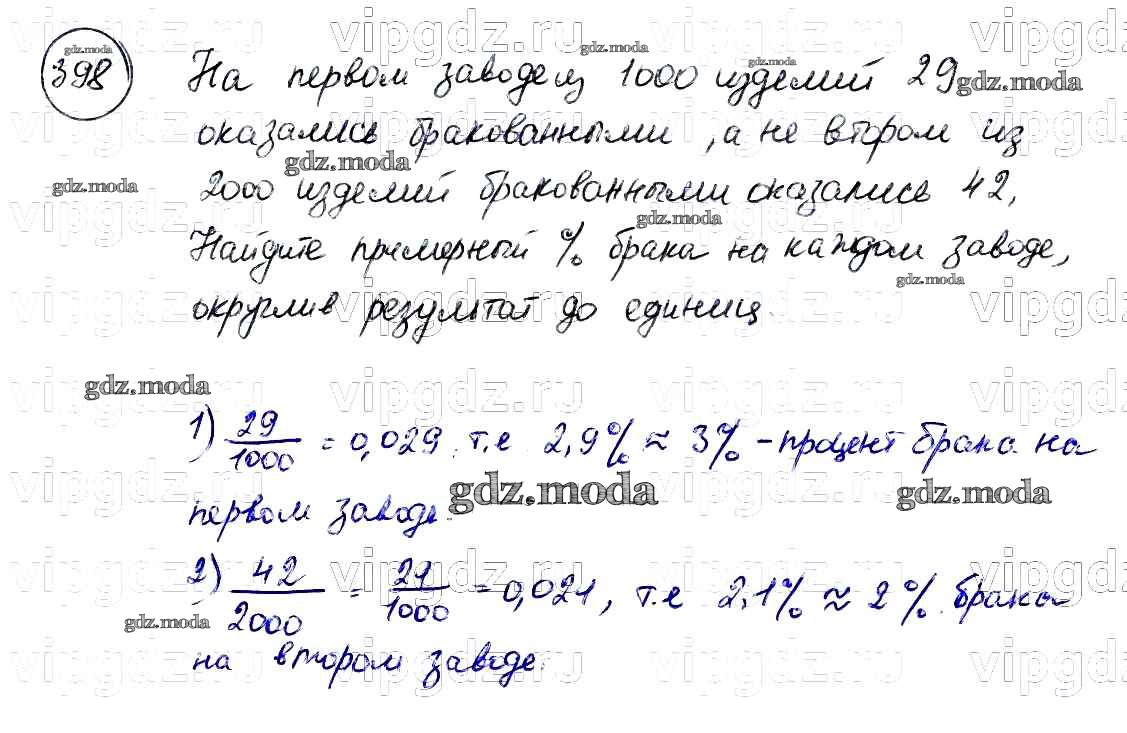 398
На первом заводе из 1000 изделий 29
оказались бракованными, а не втором из
2000 изделий бракованными оказались 42,
Найдите примерный % брака на каждом заводе,
округлив результат до единиц.
1) 29/1000 = 0,029 т.е 2,9% ≈ 3% - процент брака на
первом заводе.
2) 42/2000 = 21/1000 = 0,021, т.е 2,1% ≈ 2% брака
на втором заводе.
gdz.moda
vipgdz.ru